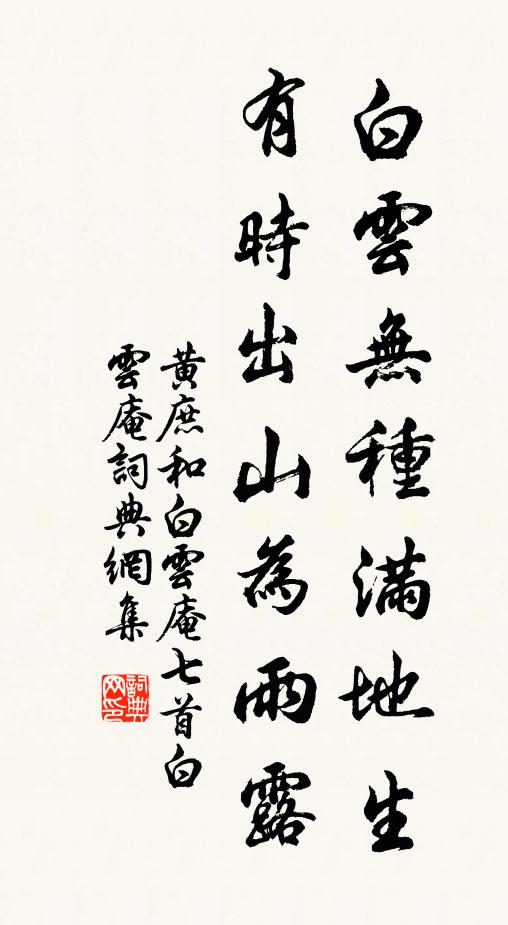 白雲無種滿地生
有時出山為雨露
黃庶和白雲庵七首白
雲庵詞典網集
詞典
网印